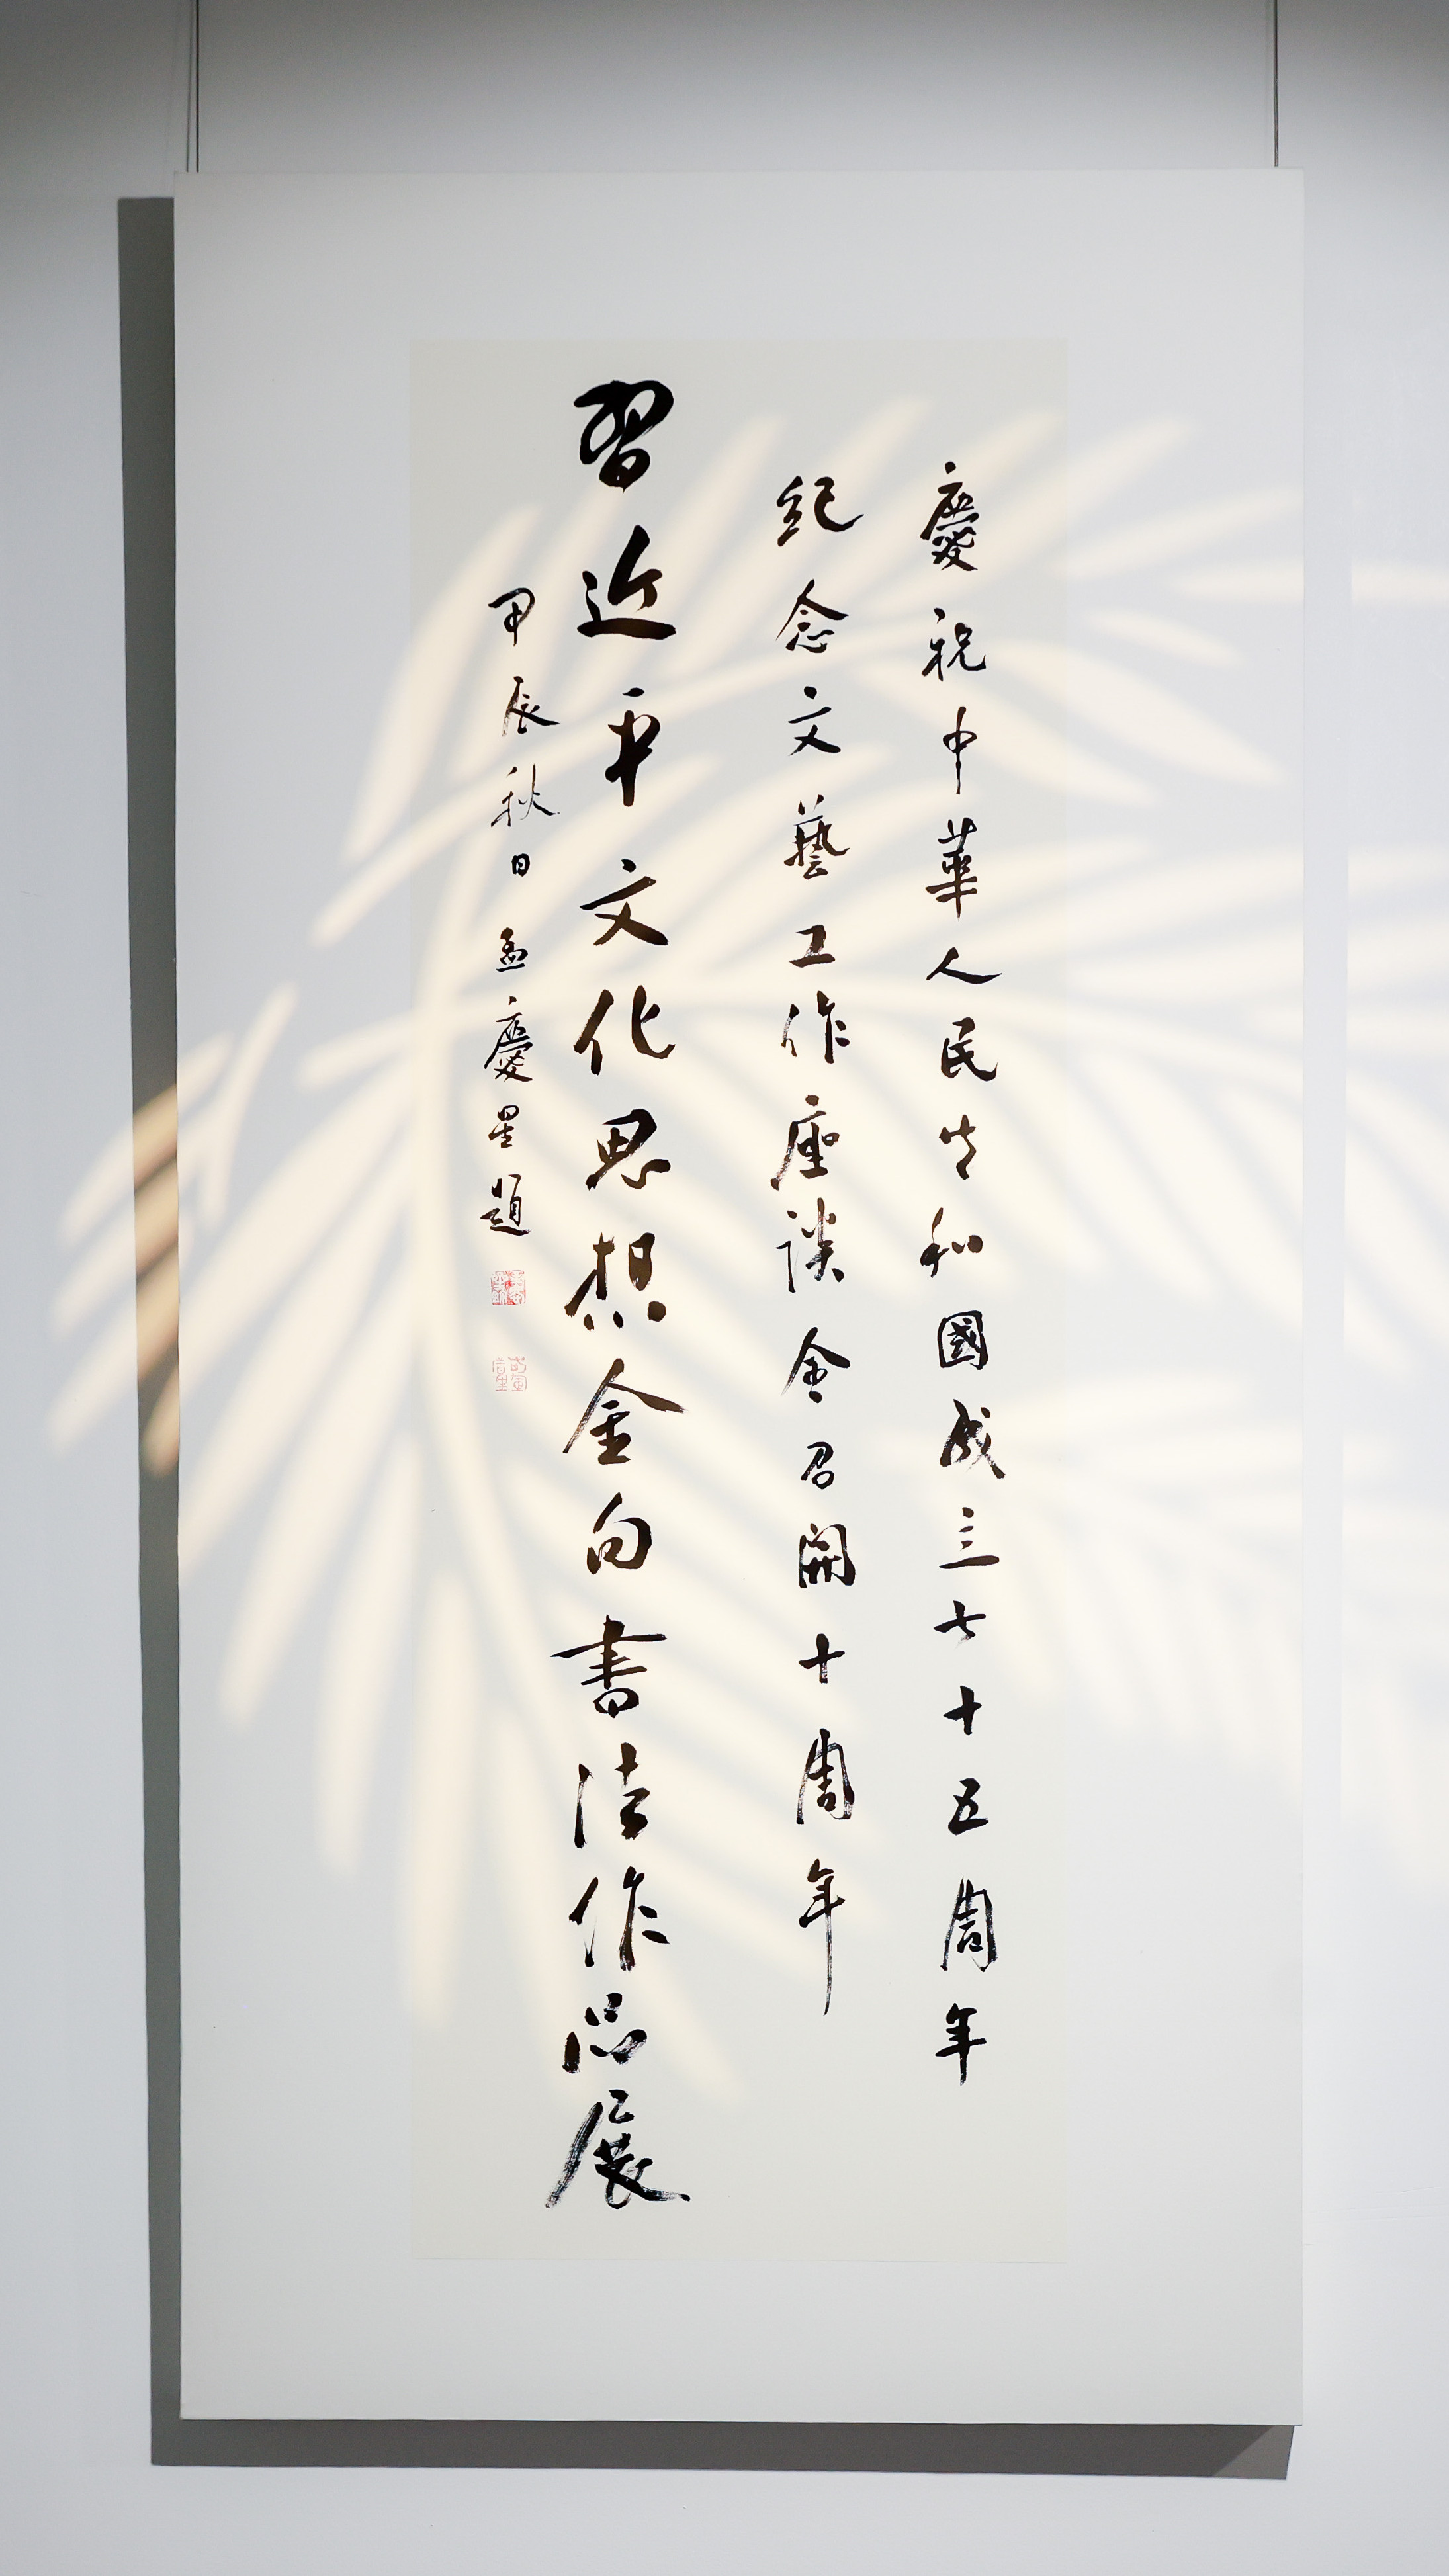 慶祝中華人民共和國成立七十五周年
紀念文藝工作座談會召開十周年
習近平文化思想金句書法作品展
甲辰秋日孟慶星題